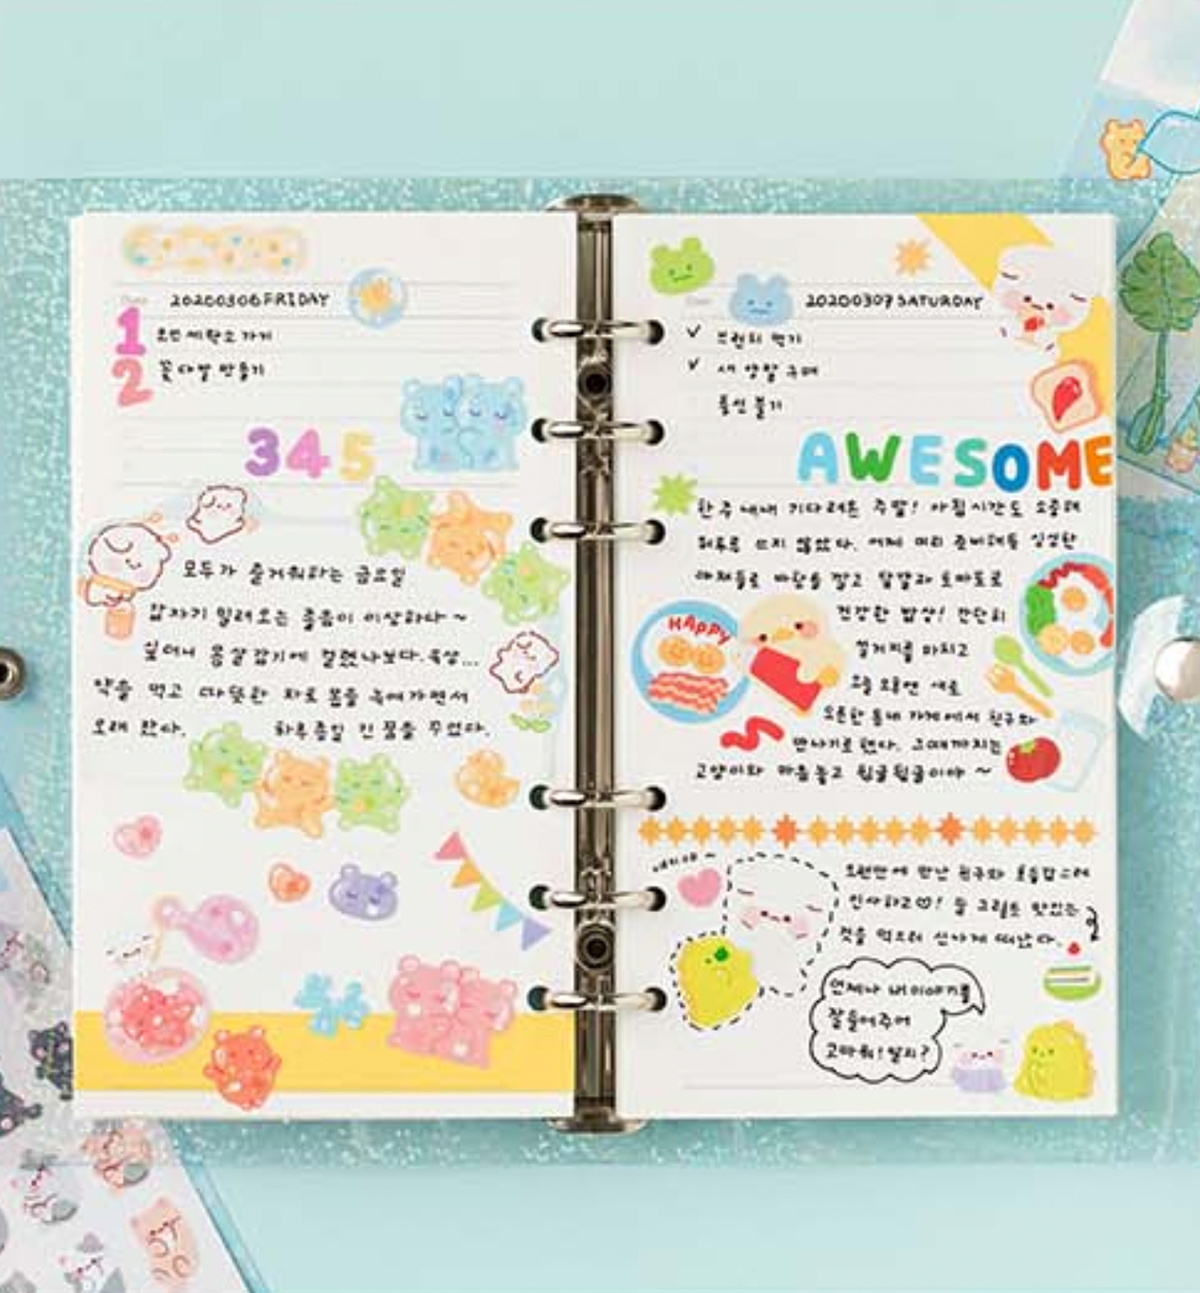 20200306 FRIDAY
1 오전 세탁소 가기
2 꽃다발 만들기
345
모두가 즐거워하는 금요일
갑자기 밀려오는 졸음이 이상하다~
싶더니 몸살감기에 걸렸나보다. 육성...
약을 먹고 따뜻한 차로 몸을 녹여가면서
오래 잤다. 하루종일 긴 꿈을 꾸었다.
20200307 SATURDAY
브런치 먹기
새 양말 구매
풍선 불기
AWESOME
한 주 내내 기다려온 주말! 아침시간도 소중해
허투루 쓰지 않았다. 어제 미리 준비해둔 싱싱한
야채들로 바탕을 깔고 달걀과 토마토로
건강한 밥상! 간단히
HAPPY
설거지를 마치고
오늘 오후엔 새로
오픈한 동네 가게에서 친구와
만나기로 했다. 그때까지는
고양이와 마음놓고 뒹굴뒹굴이야~
오랜만에 만난 친구와 호들갑스레
인사하고♡! 둘 그릴도 맛있는
것을 먹으러 신나게 떠났다.
언제나 내 이야기를
잘 들어주어
고마워! 알지?